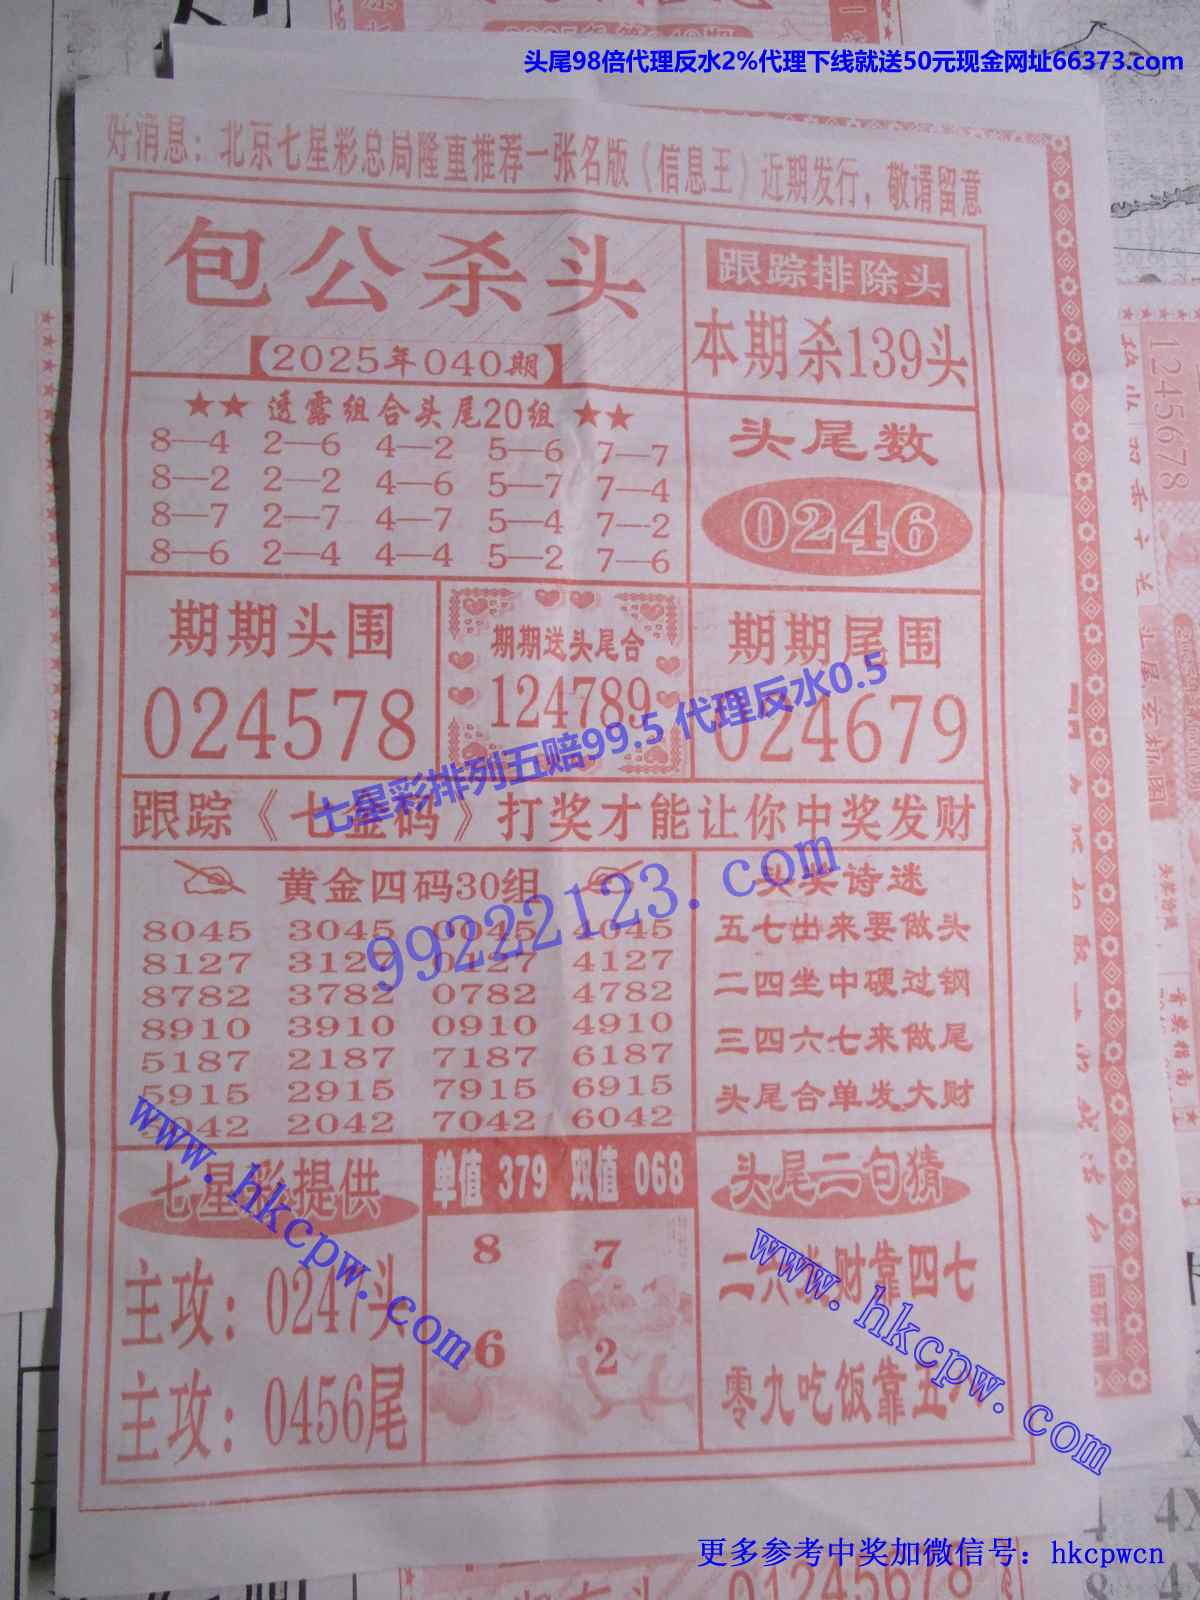 头尾98倍代理反水2%代理下线就送50元现金网址66373.com
好消息：北京七星彩总局隆重推荐一张名版《信息王》近期发行，敬请留意
包公杀头
【2025年040期】
跟踪排除头
本期杀139头
★★ 透露组合头尾20组 ★★
8—4 2—6 4—2 5—6 7—7
8—2 2—2 4—6 5—7 7—4
8—7 2—7 4—7 5—4 7—2
8—6 2—4 4—4 5—2 7—6
头尾数
0246
期期头围
024578
期期送头尾合
124789
期期尾围
024679
七星彩排列五赔99.5 代理反水0.5
跟踪《七金码》打奖才能让你中奖发财
99222123.com
黄金四码30组
8045 3045 0045 4045
8127 3127 0127 4127
8782 3782 0782 4782
8910 3910 0910 4910
5187 2187 7187 6187
5915 2915 7915 6915
5042 2042 7042 6042
头奖诗迷
五七出来要做头
二四坐中硬过钢
三四六七来做尾
头尾合单发大财
www.hkcpw.com
七星彩提供
主攻：0247头
主攻：0456尾
单值 379 双值 068
8 7
6 2
头尾二句猜
财靠四七
零九吃饭靠五
www.hkcpw.com
更多参考中奖加微信号：hkcpwcn
1245678
01245678